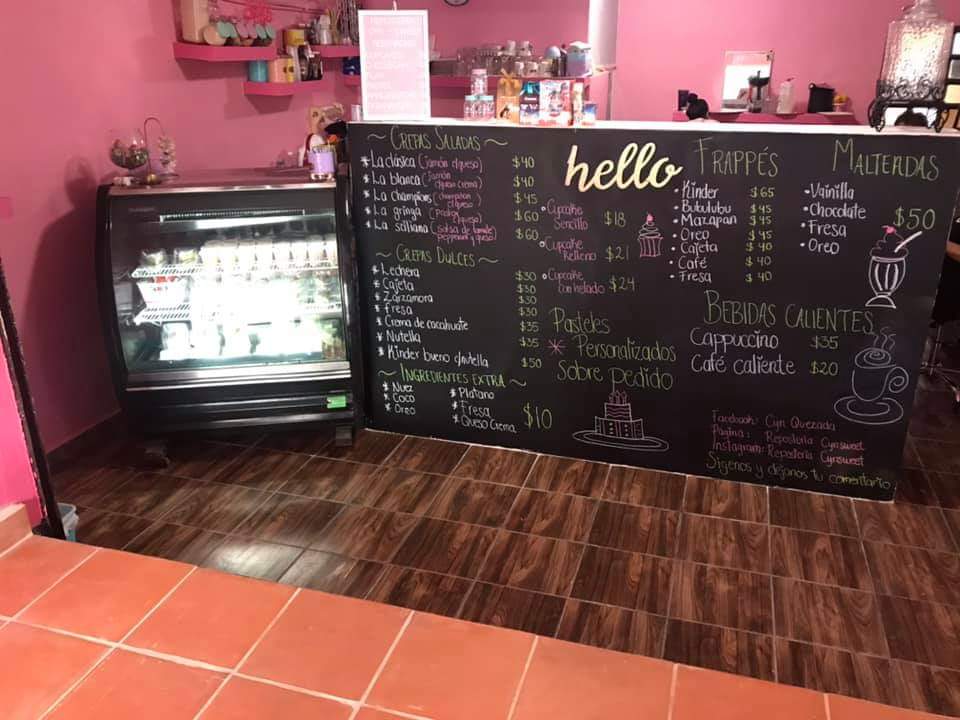 ~ CREPAS SALADAS ~
* La clásica (jamón c/queso) $40
* La blanca (jamón c/queso crema) $40
* La champions (champiñon c/queso) $45
* La gringa $60
* La siciliana (salsa de tomate, pepperoni y queso) $60
CREPAS DULCES ~
* Lechera $30
* Cajeta $30
* Zarzamora $30
* Fresa
* Crema de cacahuate $35
* Nutella $35
* Kinder bueno c/nutella $50
~ INGREDIENTES EXTRA ~
* Nuez
* Coco
* Oreo
* Platano
* Fresa
* Queso Crema
$10
hello
• Cupcake Sencillo $18
• Cupcake Relleno $21
• Cupcake con helado $24
Pasteles
* Personalizados
Sobre pedido
FRAPPÉS
• Kinder $65
• Bubulubu $45
• Mazapan $45
• Oreo $45
• Cajeta $40
• Café $40
• Fresa $40
MALTEADAS
• Vainilla
• Chocolate
• Fresa
• Oreo
$50
BEBIDAS CALIENTES
Cappuccino $35
Café caliente $20
Facebook: Cyn Quezada
Pagina: Repostería Cynsweet
Instagram: Repostería Cynsweet
Siguenos y dejanos tu comentario